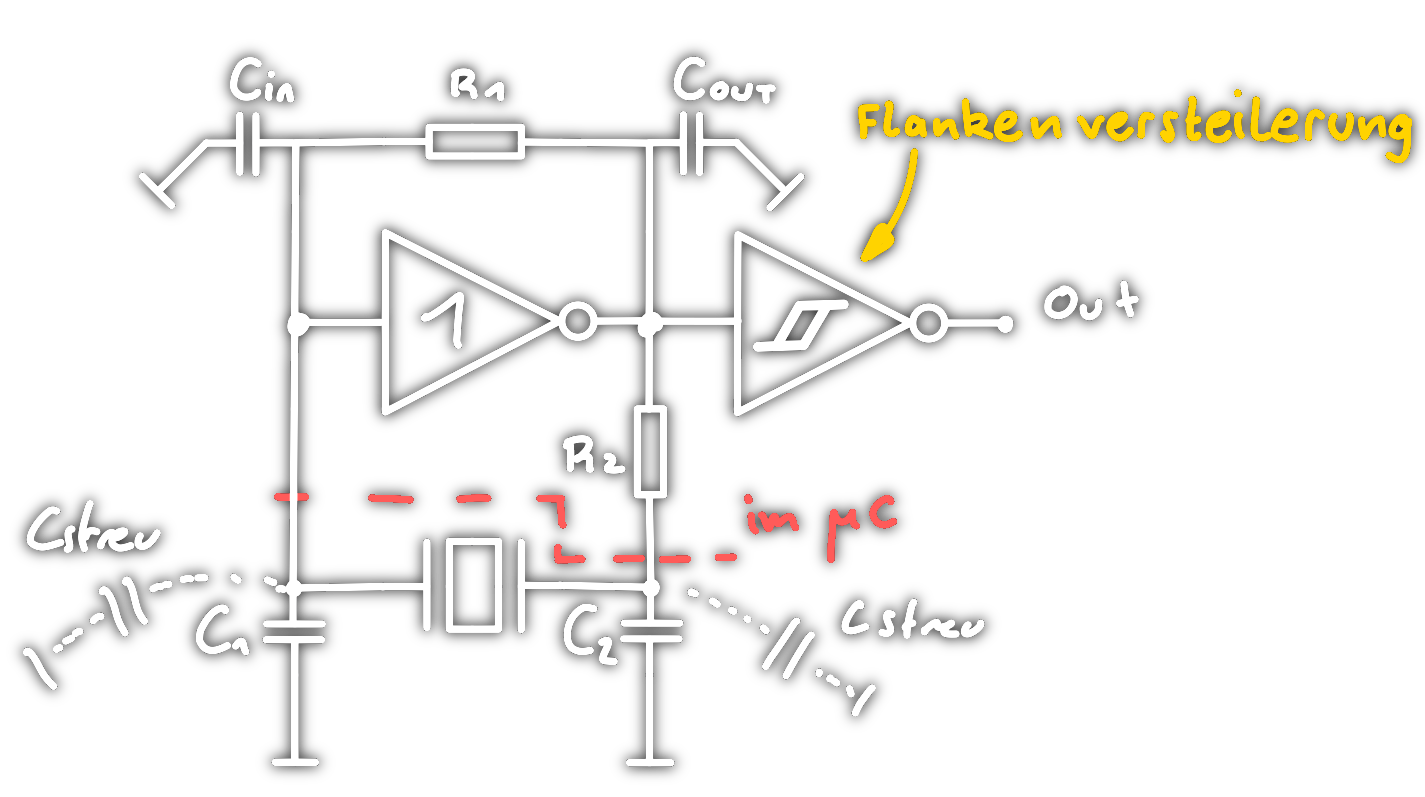 Cin
R1
COUT
Flankenversteilerung
1
Out
R2
Cstreu
im µC
C1
C2
Cstreu